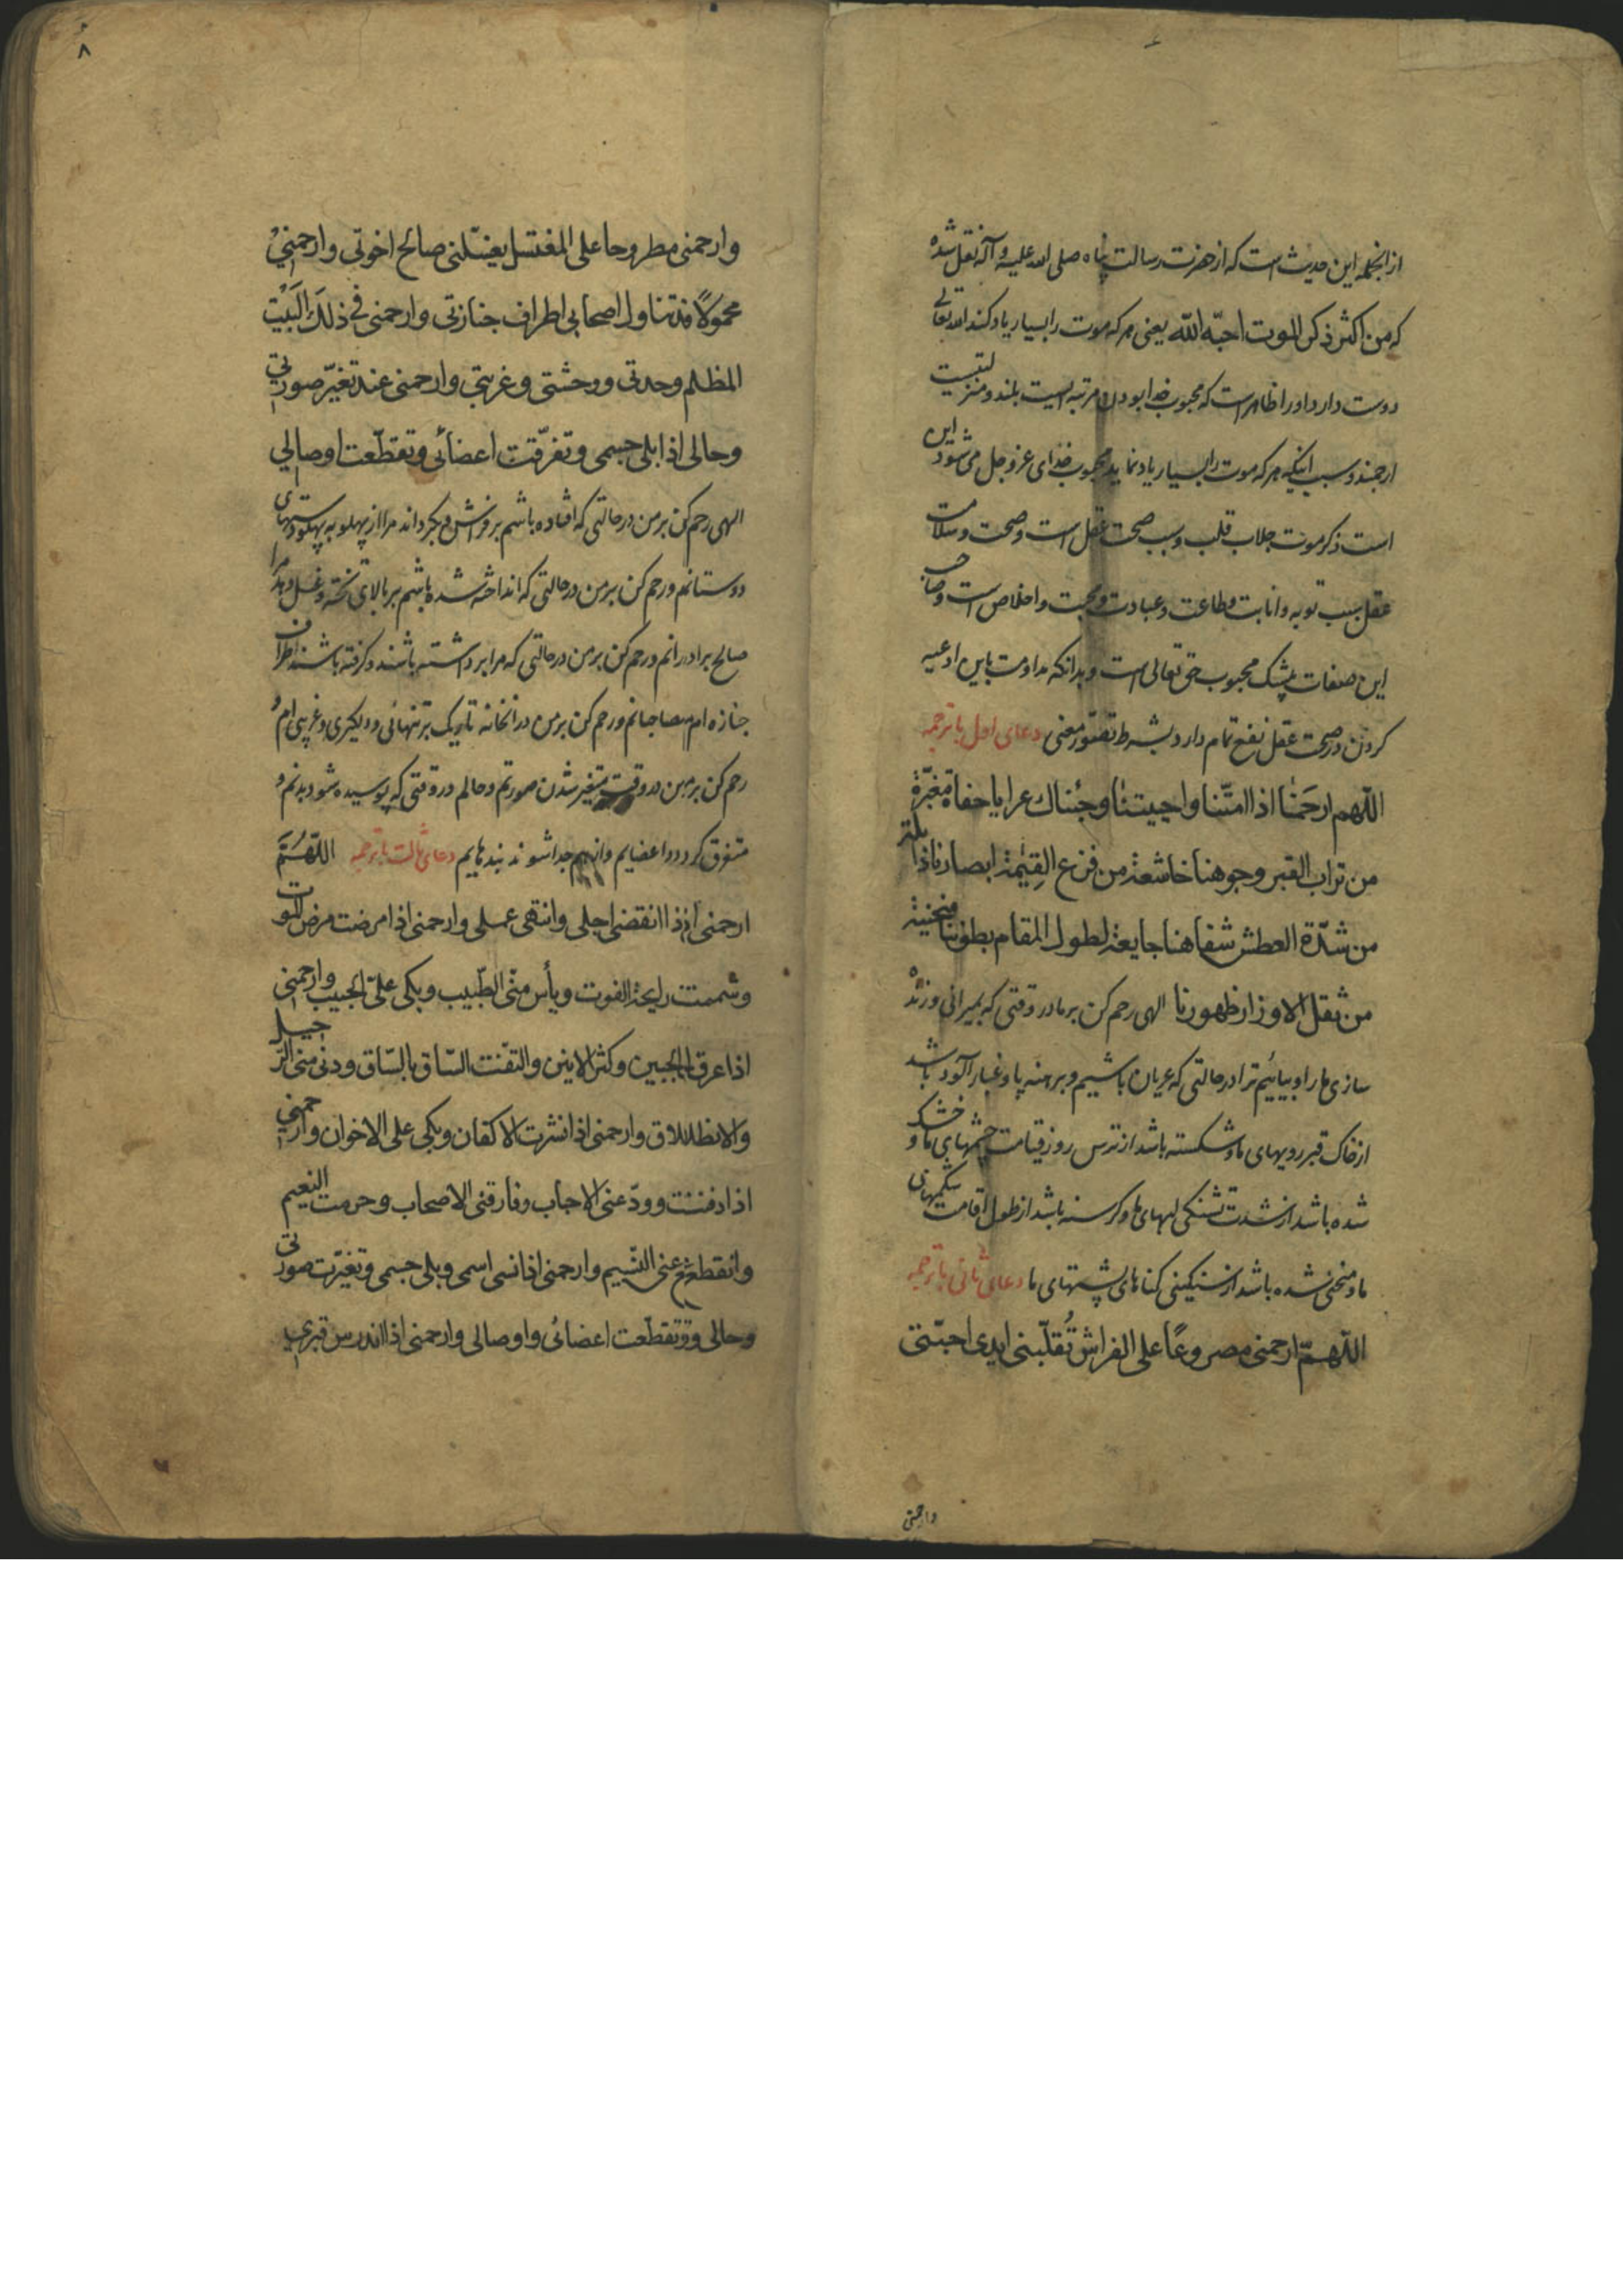 ازانجمله این حدیث است که از حضرت رسالت پناه صلی الله علیه و آله نقل شده
که من اکثر ذکر الموت احبّه الله یعنی هر که موت را بسیار یاد کند الله تعالی
دوست دارد او را ظاهر است که محبوب خدا بودن مرتبه ایست بلند و منزلتیست
ارجمند و سبب اینکه هر که موت را بسیار یاد نماید محبوب خدای عز و جل می شود این
است ذکر موت جلاب قلب و سبب صحت عقل است و صحت و سلامت
عقل سبب توبه و انابت و طاعت و عبادت و محبت و اخلاص است و صاحب
این صفات بیشک محبوب حق تعالی است و بدانکه مداومت باین ادعیه
کردن در صحت عقل نفع تمام دارد بشرط تصور معنی دعای اول با ترجمه
اللهم ارحمنا اذا امتّنا واحییتنا وجئناك عرایا حفاة مغبّرة
من تراب القبر وجوهنا خاشعة من فزع القیٰمة ابصارنا ذابلة
من شدّة العطش شفاهنا جایعة لطول المقام بطوننا منحنیة
من ثقل الاوزار ظهورنا الهی رحم کن بر ما در وقتی که بمیرانی و زنده
سازی ما را و بیائیم ترا در حالتی که عریان باشیم و برهنه پا و غبار آلود باشد
از خاک قبر رویهای ما و شکسته باشد از ترس روز قیامت چشمهای ما و خشک
شده باشد از شدت تشنکی لبهای ما و کرسنه باشد از طول اقامت شکمهای
ما و منحنی شده باشد از سنکینی کناهای پشتهای ما دعای ثانی با ترجمه
اللّهمّ ارحمنی مصروعًا علی الفراش تُقلّبنی ایدی احبّتی
وارحمنی
۸
وارحمنی مطروحا علی المغتسل یغسّلنی صالح اخوتی وارحمنی
محمولاً قد تناول اصحابی اطراف جنازتی وارحمنی فی ذلك البَیْت
المظلم وحدتی ووحشتی وغربتی وارحمنی عند تغیّر صورتی
وحالی اذا بلی جسمی وتفرّقت اعضائی وتقطّعت اوصالی
الهی رحم کن بر من در حالتی که افتاده باشم بر فراش و بکرداند مرا از پهلو به پهلو دستهای
دوستانم و رحم کن بر من در حالتی که انداخته شده باشم بر بالای تخته و غسل دهد مرا
صالح برادرانم و رحم کن بر من در حالتی که مرا برداشته باشند و کرفته باشند اطراف
جنازه ام مصاحبانم و رحم کن بر من در انخانه تاریک بر تنهائی و دلگیری و غریبی ام و
رحم کن بر من در وقت متغیر شدن صورتم و حالم در وقتی که پوسیده شود بدنم و
متفرق کردد اعضایم و از هم جدا شوند بندهایم دعای ثالث با ترجمه اللّهُمّ
ارحمنی اذا انقضی اجلی وانتهی عملی وارحمنی اذا مرضت مرض الموت
وشممت رایحة الفوت ویأس منّی الطّبیب وبکی علیّ الحبیب وارحمنی
اذا عرق الجبین وکثر الانین والتفّت السّاق بالسّاق ودنی منی الرّحیل
والانطلاق وارحمنی اذا نشرت الاکفان وبکی علی الاخوان وارحمنی
اذا دفنت وودّعنی الاحباب وفارقنی الاصحاب وحرمت النعیم
وانقطع عنی النّسیم وارحمنی اذا نسی اسمی وبلی جسمی وتغیّرت صورتی
وحالی وتقطّعت اعضائی واوصالی وارحمنی اذا اندرس قبری